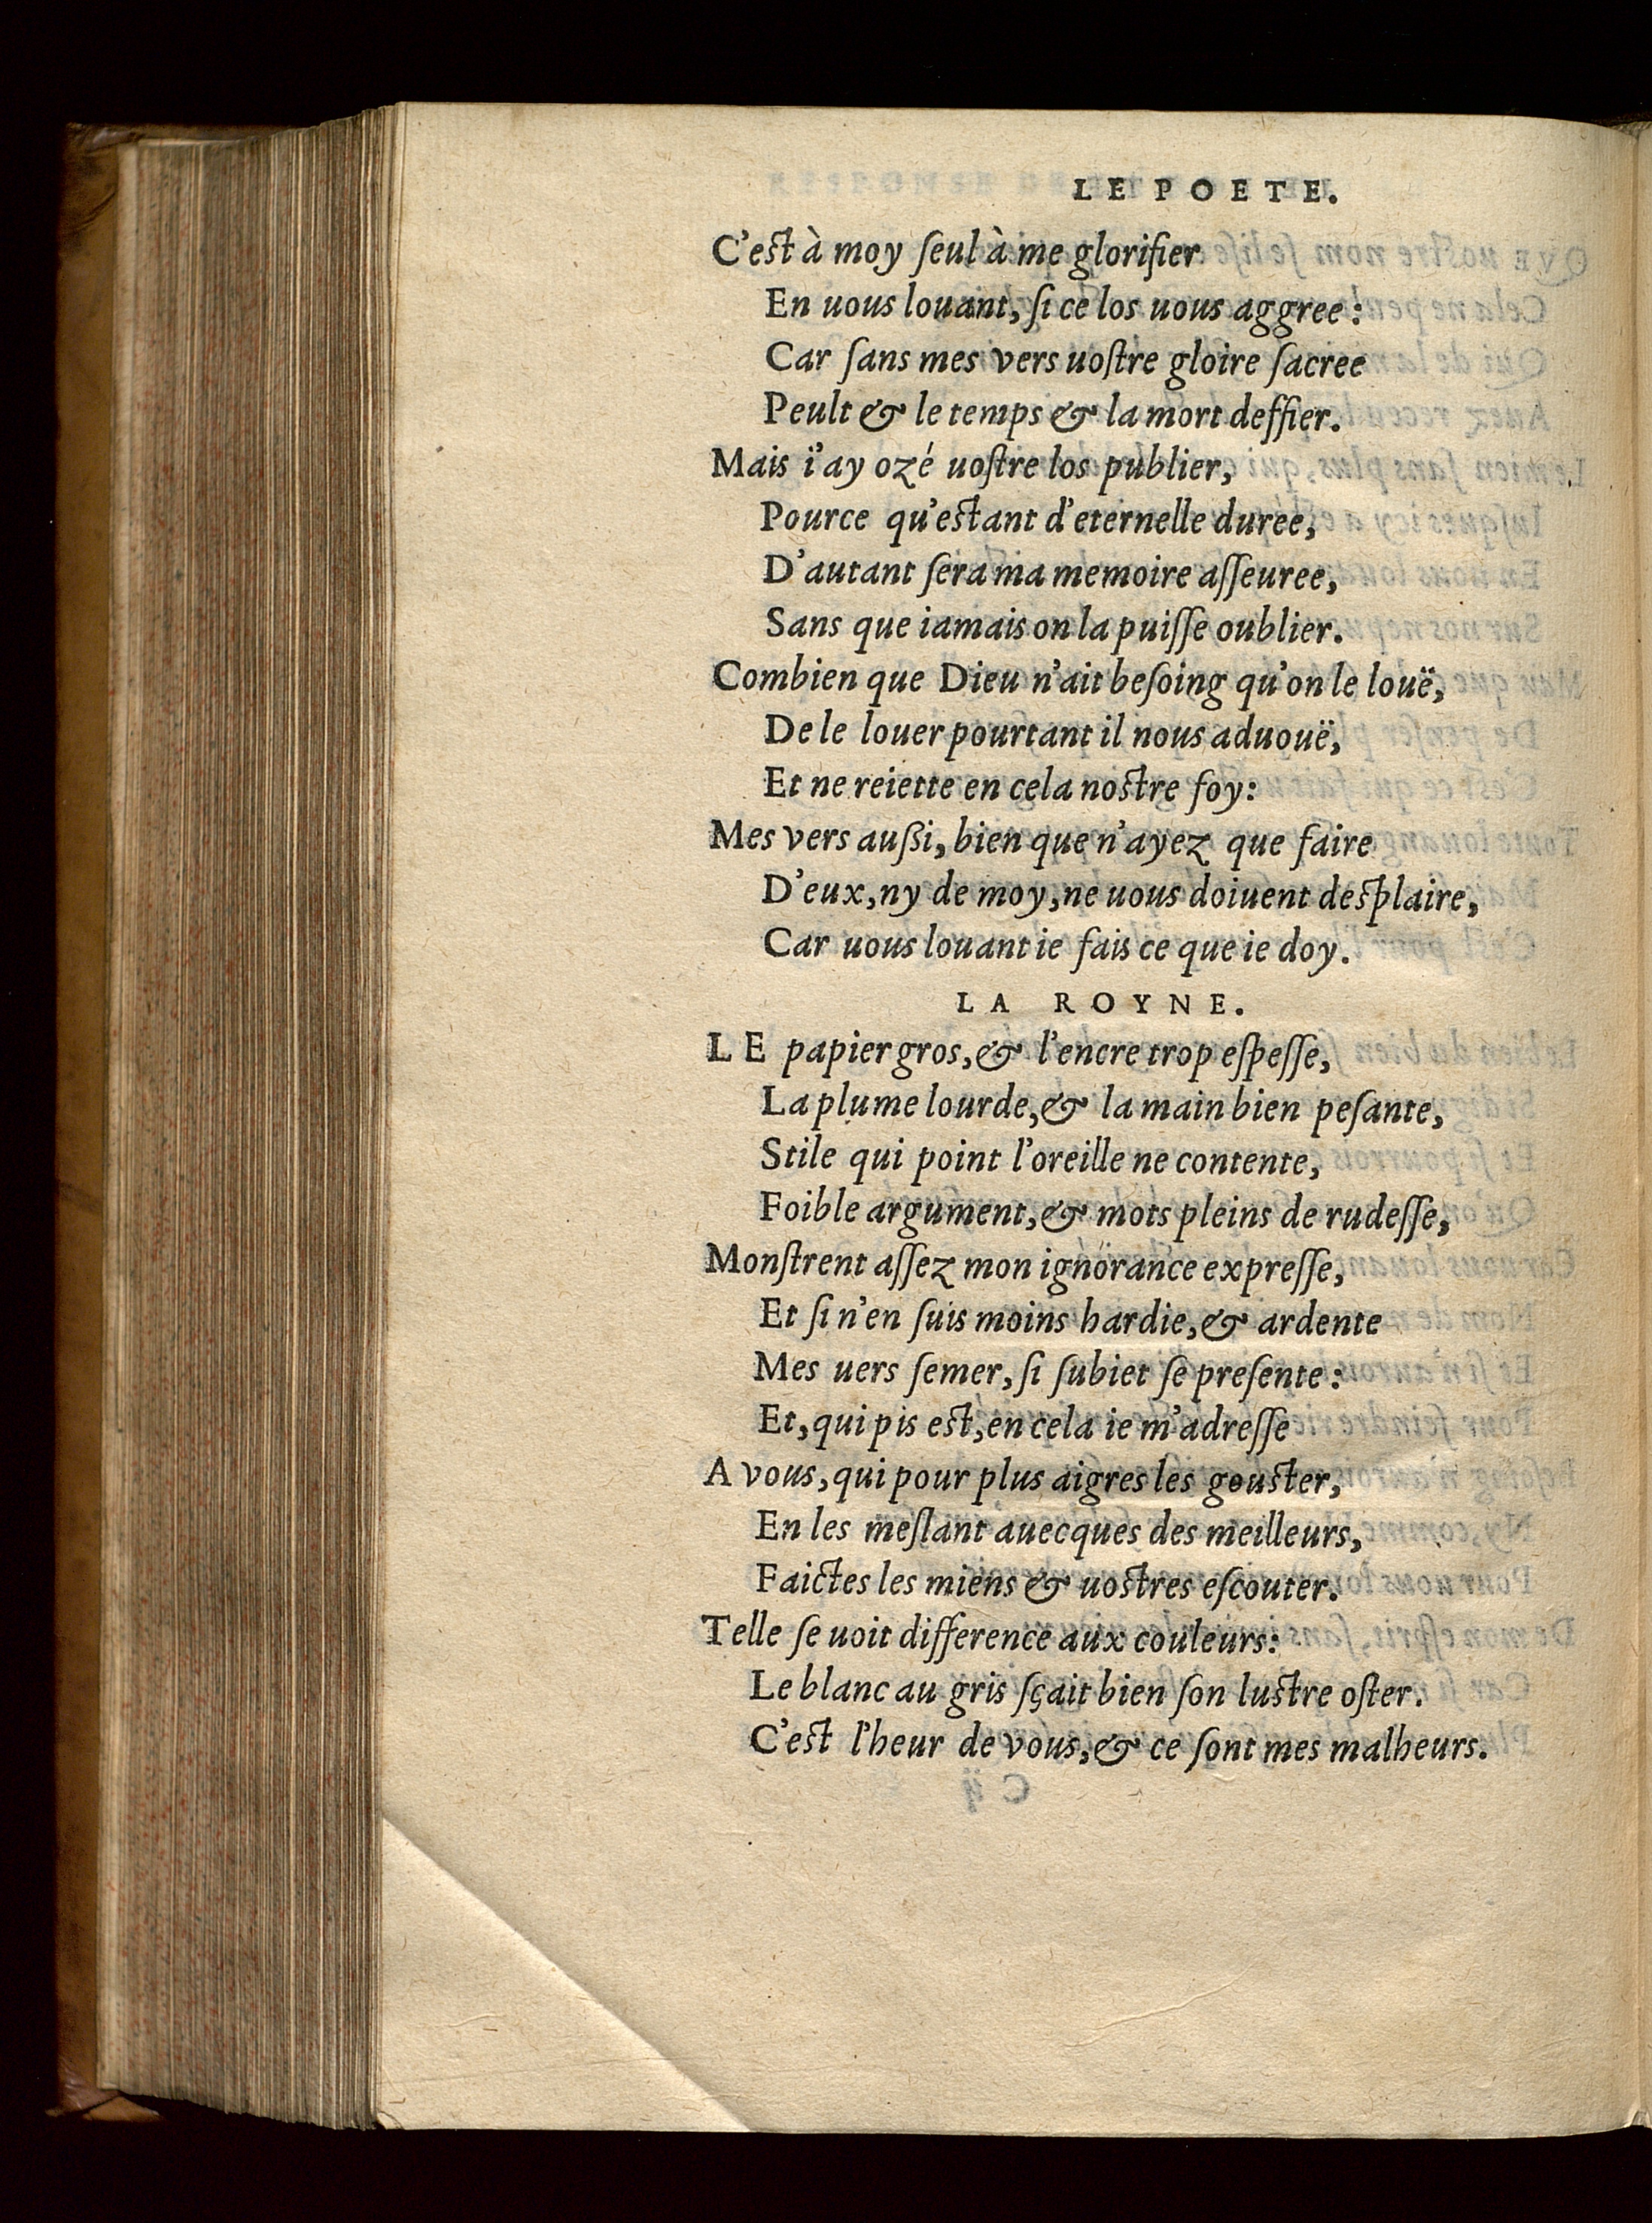 LE POETE.
C'est à moy ſeul à me glorifier
En uous louant, ſi ce los uous aggree:
Car ſans mes vers uoſtre gloire ſacree
Peult & le temps & la mort deffier.
Mais i'ay ozé uoſtre los publier,
Pource qu'estant d'eternelle duree,
D'autant ſera ma memoire aſſeuree,
Sans que iamais on la puiſſe oublier.
Combien que Dieu n'ait beſoing qu'on le louë,
De le louer pourtant il nous aduouë,
Et ne reiette en cela nostre foy:
Mes vers außi, bien que n'ayez que faire
D'eux, ny de moy, ne uous doiuent desplaire,
Car uous louant ie fais ce que ie doy.
LA ROYNE.
LE papier gros, & l'encre trop eſpeſſe,
La plume lourde, & la main bien peſante,
Stile qui point l'oreille ne contente,
Foible argument, & mots pleins de rudeſſe,
Monſtrent aſſez mon ignorance expreſſe,
Et ſi n'en ſuis moins hardie, & ardente
Mes uers ſemer, ſi ſubiet ſe preſente:
Et, qui pis est, en cela ie m'adreſſe
A vous, qui pour plus aigres les gouster,
En les meſlant auecques des meilleurs,
Faictes les miens & uostres eſcouter.
Telle ſe uoit difference aux couleurs:
Le blanc au gris ſçait bien ſon lustre oſter.
C'est l'heur de vous, & ce ſont mes malheurs.